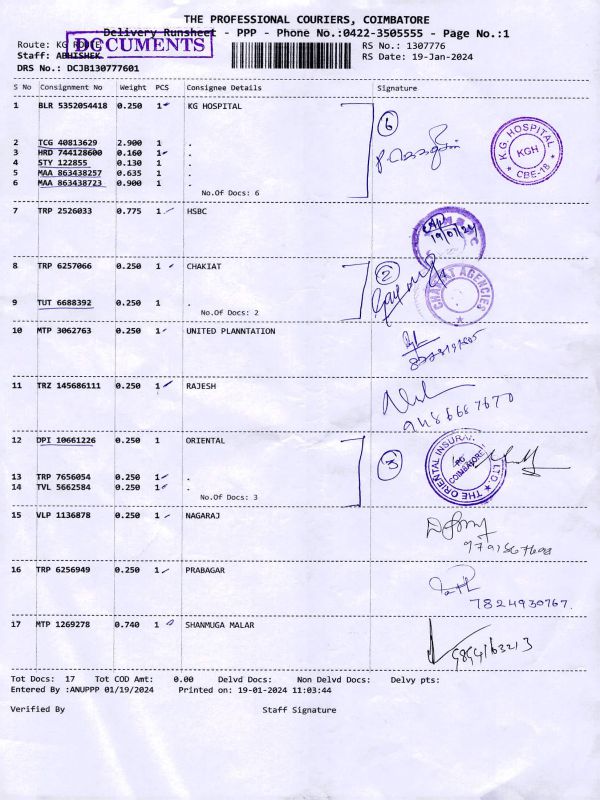 THE PROFESSIONAL COURIERS, COIMBATORE
Delivery Runsheet - PPP - Phone No.:0422-3505555 - Page No.:1
DOCUMENTS
Route: KG ROUTE
RS No.: 1307776
Staff: ABHISHEK
RS Date: 19-Jan-2024
DRS No.: DCJB130777601
S No Consignment No Weight PCS Consignee Details Signature
1 BLR 5352054418 0.250 1 KG HOSPITAL
6
K.G. HOSPITAL KGH CBE-18
2 TCG 40813629 2.900 1 .
3 HRD 744128600 0.160 1 .
4 STY 122855 0.130 1 .
5 MAA 863438257 0.635 1 .
6 MAA 863438723 0.900 1 .
No.Of Docs: 6
7 TRP 2526033 0.775 1 HSBC
19/01/24
8 TRP 6257066 0.250 1 CHAKIAT
2
CHAKIAT AGENCIES
9 TUT 6688392 0.250 1 .
No.Of Docs: 2
10 MTP 3062763 0.250 1 UNITED PLANNTATION
11 TRZ 145686111 0.250 1 RAJESH
9486687670
12 DPI 10661226 0.250 1 ORIENTAL
3
THE ORIENTAL INSURANCE LTD. COIMBATORE
13 TRP 7656054 0.250 1 .
14 TVL 5662584 0.250 1 .
No.Of Docs: 3
15 VLP 1136878 0.250 1 NAGARAJ
16 TRP 6256949 0.250 1 PRABAGAR
7824930767.
17 MTP 1269278 0.740 1 SHANMUGA MALAR
9894163213
Tot Docs: 17 Tot COD Amt: 0.00 Delvd Docs: Non Delvd Docs: Delvy pts:
Entered By :ANUPPP 01/19/2024 Printed on: 19-01-2024 11:03:44
Verified By Staff Signature